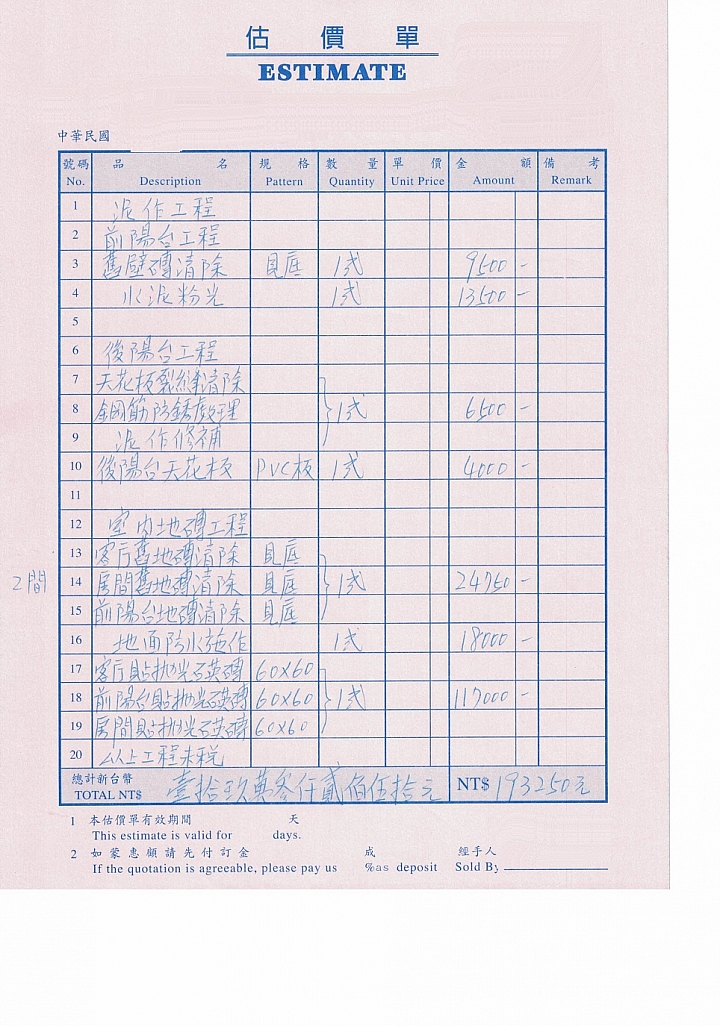 估價單
ESTIMATE
中華民國
號碼 品名 規格 數量 單價 金額 備考
No. Description Pattern Quantity Unit Price Amount Remark
1 泥作工程
2 前陽台工程
3 舊壁磚清除 見底 1式 9500 -
4 水泥粉光 1式 13500 -
5
6 後陽台工程
7 天花板裂縫清除
8 鋼筋防銹處理 1式 6500 -
9 泥作修補
10 後陽台天花板 PVC板 1式 4000 -
11
12 室內地磚工程
13 客厅舊地磚清除 見底
2間 14 房間舊地磚清除 見底 1式 24750 -
15 前陽台地磚清除 見底
16 地面防水施作 1式 18000 -
17 客厅貼拋光石英磚 60x60
18 前陽台貼拋光石英磚 60x60 1式 117000 -
19 房間貼拋光石英磚 60x60
20 以上工程未稅
總計新台幣
TOTAL NT$ 壹拾玖萬零仟貳佰伍拾元 NT$ 193250元
1 本估價單有效期間 天
This estimate is valid for days.
2 如蒙惠顧請先付訂金 成 經手人
If the quotation is agreeable, please pay us %as deposit Sold By